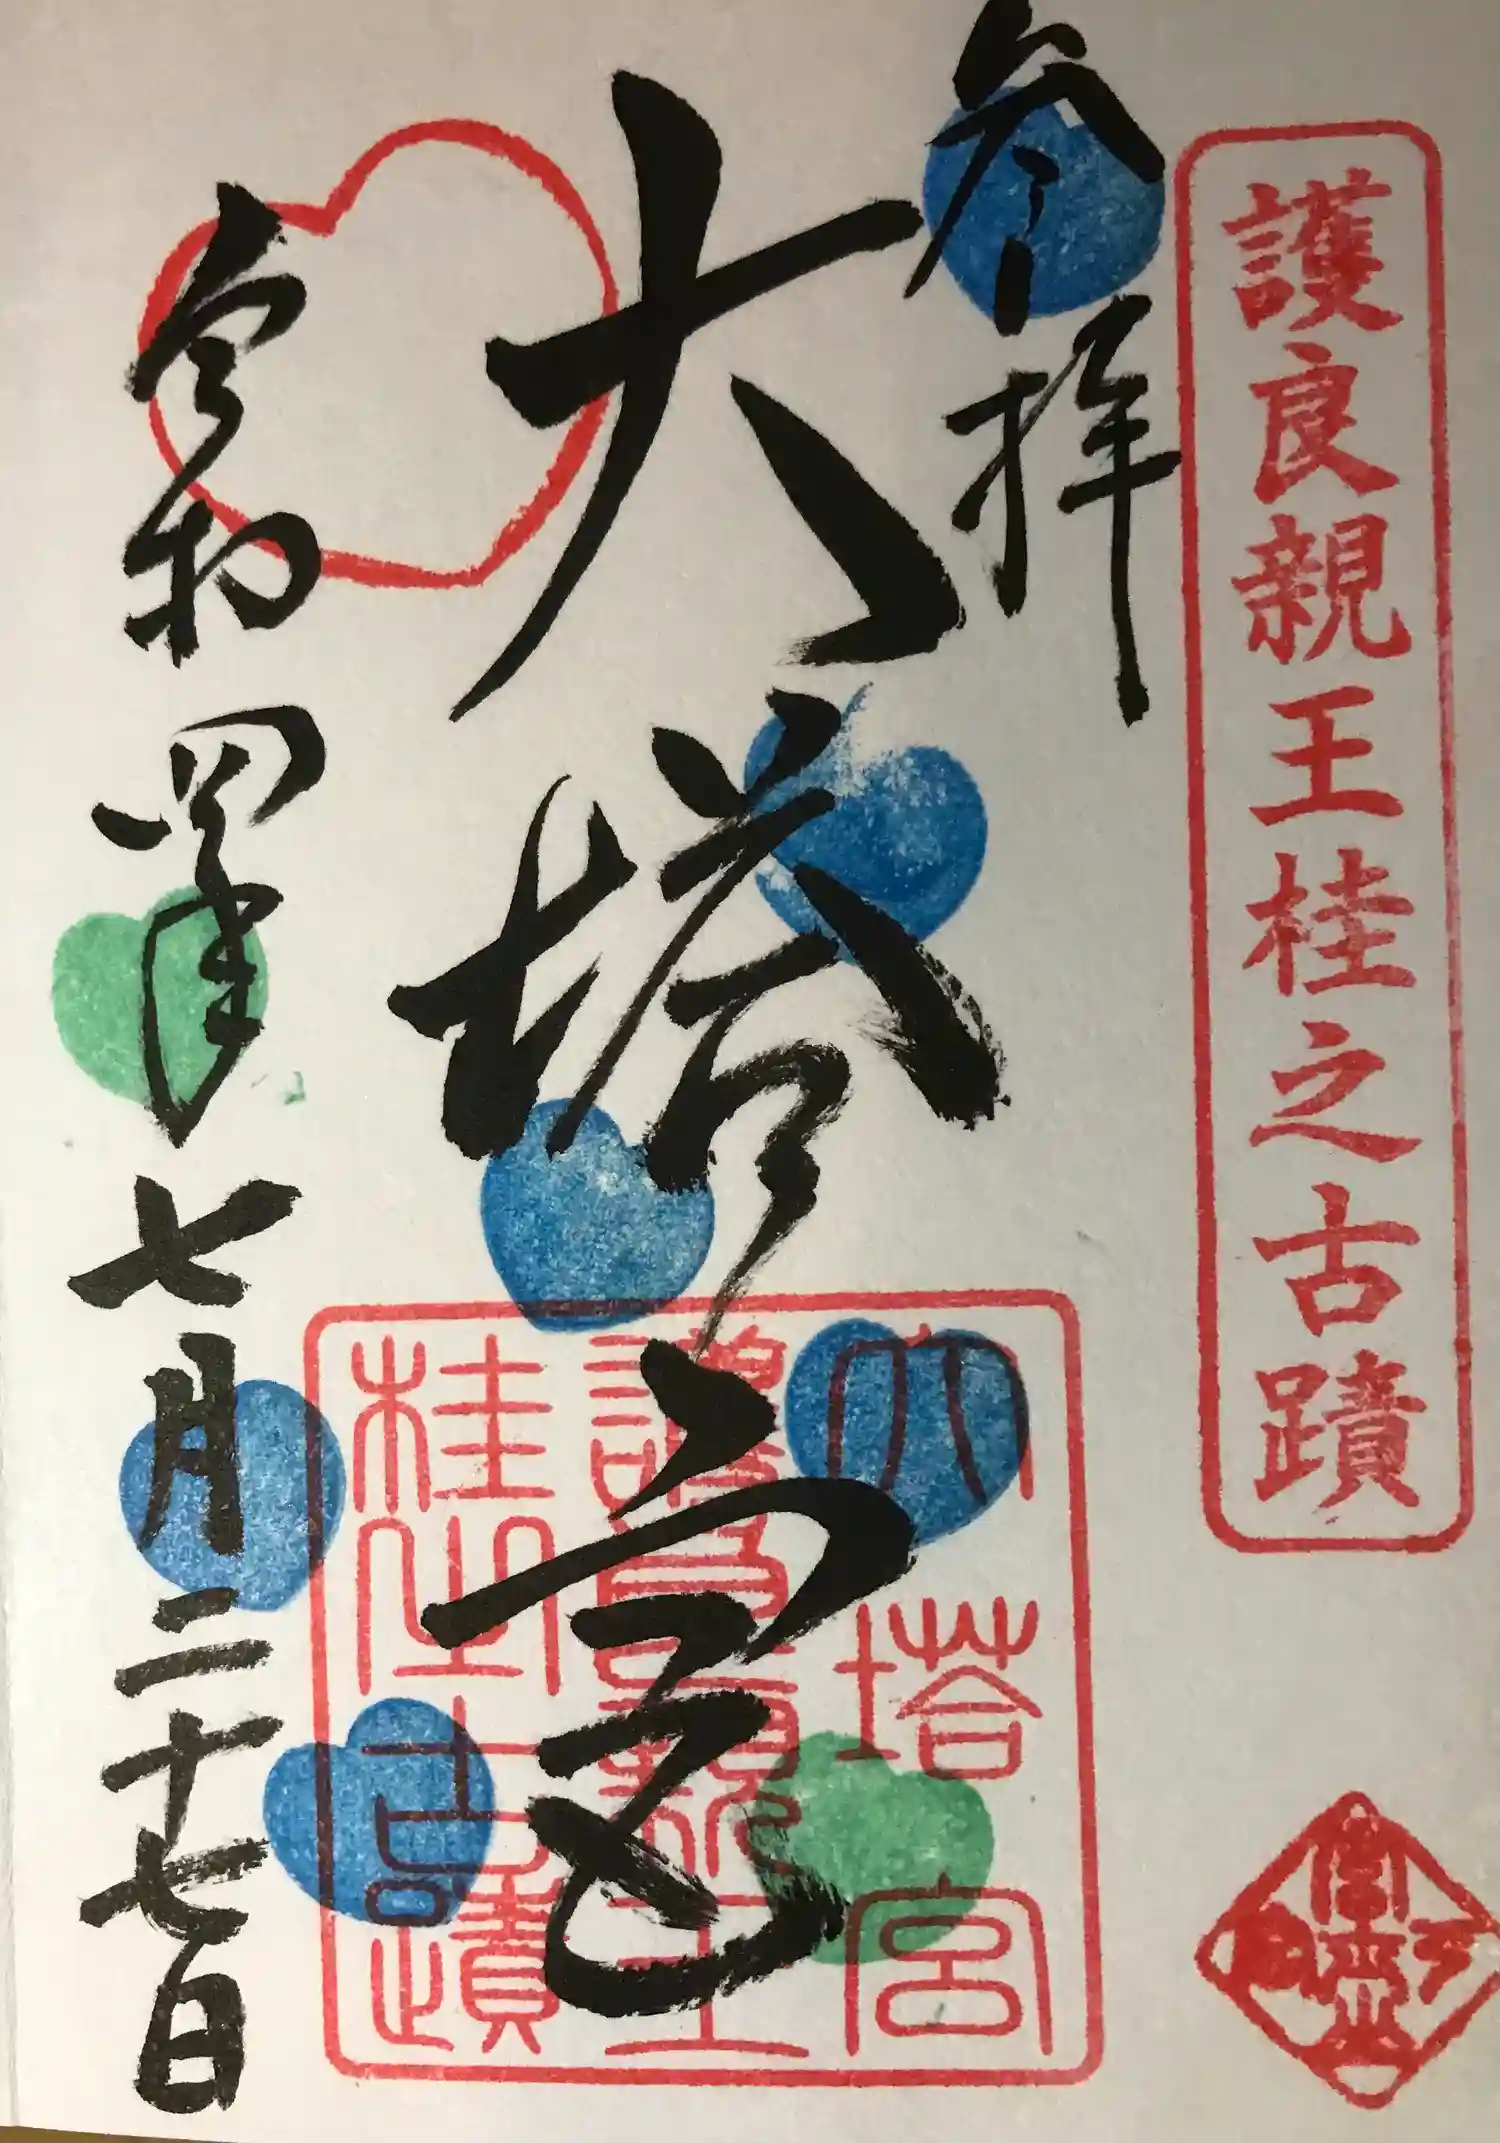 護良親王桂之古蹟
参拝
大塔宮
令和四年七月二十七日
大塔宮
護良親王
桂之古蹟